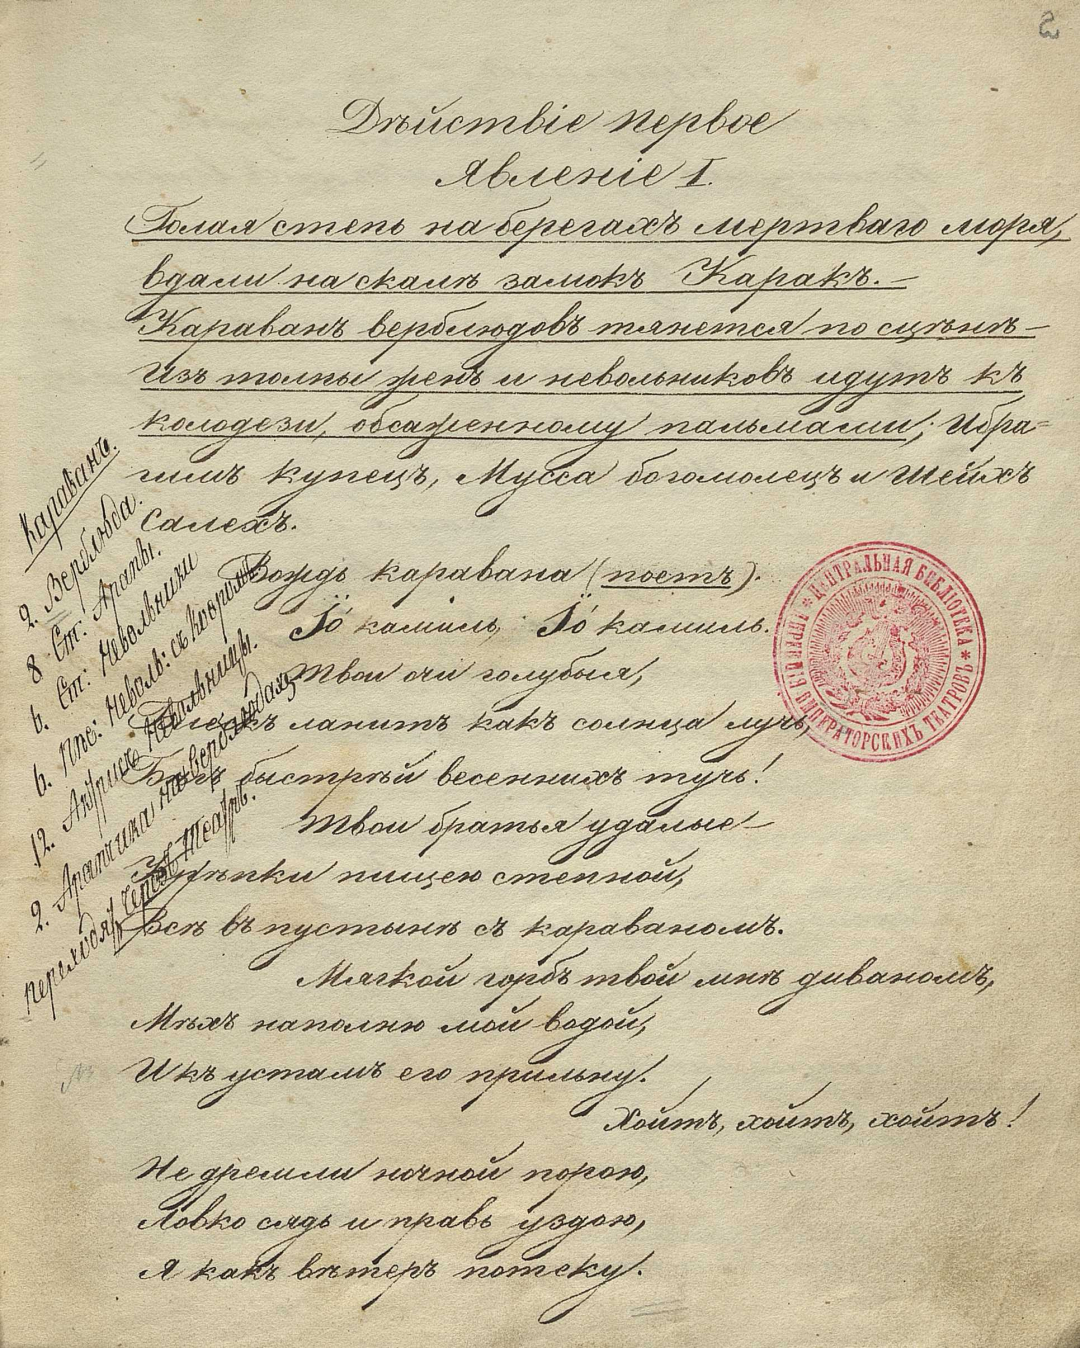 2
Дѣйствіе первое
Явленіе I.
Голая степь на берегахъ мертваго моря,
вдали на скалѣ замокъ Каракъ. —
Караванъ верблюдовъ тянется по сценѣ —
Изъ толпы женъ и невольниковъ идутъ къ
колодези, обсаженному пальмами; Ибра=
гимъ купецъ, Мусса богомолецъ и Шейхъ
Салехъ.
Вождь каравана (поетъ).
Іо́ камиль, Іо́ камиль.
Твои очи голубыя,
ланитъ какъ солнца лучъ,
Бѣгъ быстрѣй весеннихъ тучь!
Твои братья удалые —
Крѣпки пищею степной,
Всѣ въ пустынѣ съ караваномъ.
Мягкой горбъ твой мнѣ диваномъ,
Мѣхъ наполню мой водой,
И къ устамъ его прильну.
Хойтъ, хойтъ, хойтъ!
Не дремли ночной порою,
Ловко сядь и правь уздою,
Я какъ вѣтеръ потеку.
Караванъ.
2. Верблюда.
8 Ст: Арапы.
6. Ст: Невольники
6. Пѣс: Неволь: съ
12. Невольницы.
2. Арапчика на верблюдахъ
переходятъ черезъ Театръ.
ЦЕНТРАЛЬНАЯ БИБЛІОТЕКА * ИМПЕРАТОРСКИХЪ ТЕАТРОВЪ *